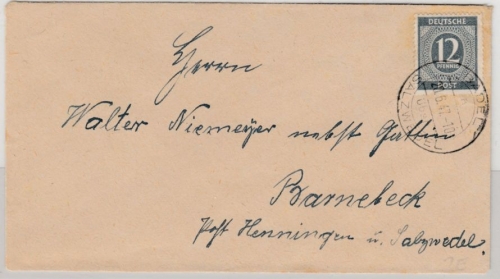 DEUTSCHE
12
PFENNIG
POST
SALZWEDEL
Herrn
Walter Niemeyer nebst Gattin
Barnebeck
Post Henningen u. Salzwedel